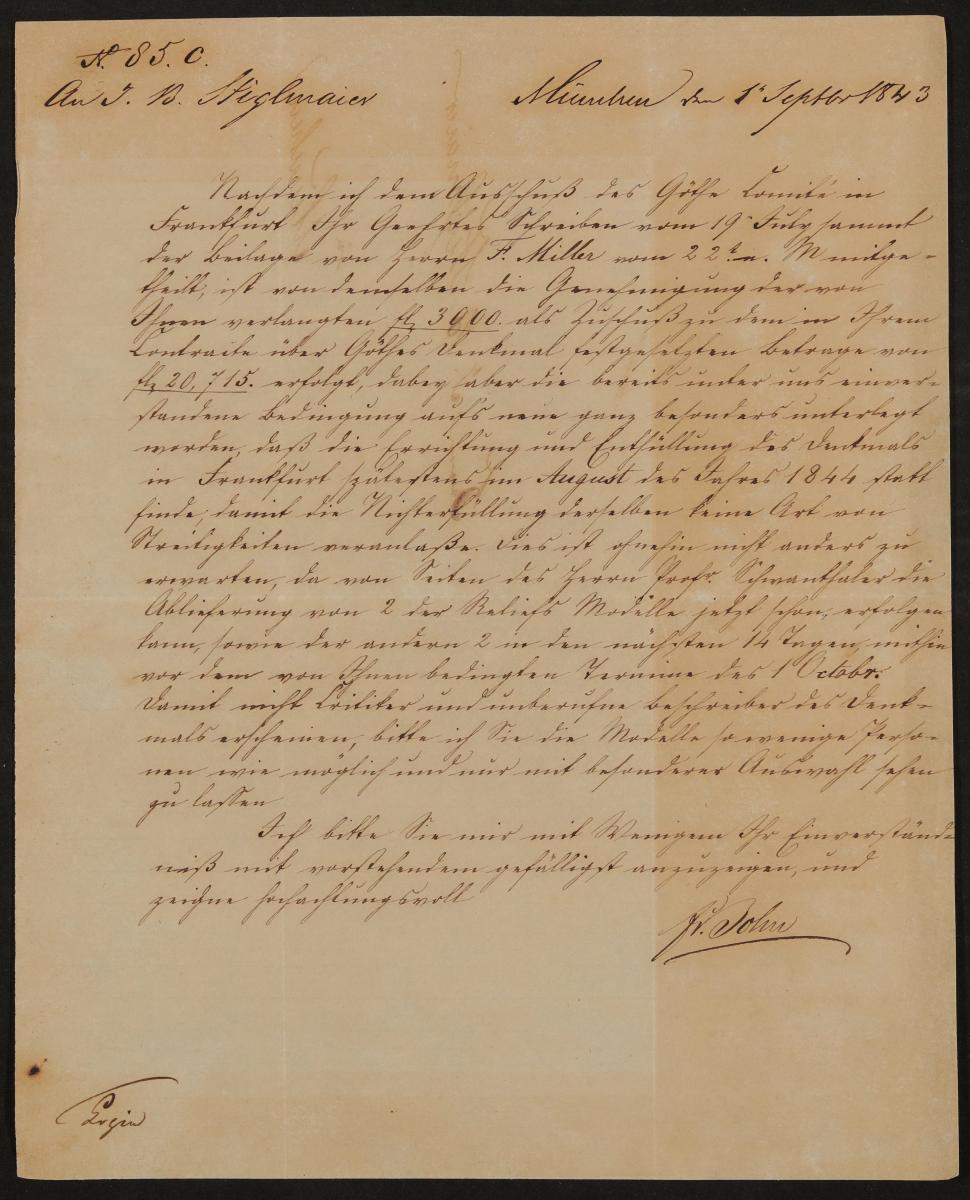 N. 85. C.
An J. B. Stiglmaier
München den 1r Septbr 1843
Nachdem ich dem Ausschuß des Göthe Comité in
Frankfurt Ihr Geehrtes Schreiben vom 19r July sammt
der Beilage von Herrn F. Miller vom 22t n. M mitge-
theilt, ist von demselben die Genehmigung der von
Ihnen verlangten fl 3000. als Zuschuß zu dem im Ihrem
Contracte über Göthes Denkmal festgesetzten Betrage von
fl 20,715. erfolgt, dabey aber die bereits unter uns einver-
standene Bedingung aufs neue ganz besonders unterlegt
worden, daß die Errichtung und Enthüllung des Denkmals
in Frankfurt spätestens im August des Jahres 1844 statt
finde, damit die Nichterfüllung derselben keine Art von
Streitigkeiten veranlaße. Dies ist ohnehin nicht anders zu
erwarten, da von Seiten des Herrn Profr. Schwanthaler die
Ablieferung von 2 der Reliefs Modelle jetzt schon, erfolgen
kann, sowie der andern 2 in den nächsten 14 Tagen, mithin
vor dem von Ihnen bedingten Termine des 1 Octobr.
Damit nicht Critiker und unberufne Beschreiber des Denk-
mals erscheinen, bitte ich Sie die Modelle so wenige Perso-
nen wie möglich und nur mit besonderer Auswahl sehen
zu lassen
Ich bitte Sie mir mit Wenigem Ihr Einverständ-
niß mit vorstehendem gefälligst anzuzeigen, und
zeichne hochachtungsvoll
Fr. John
Copia